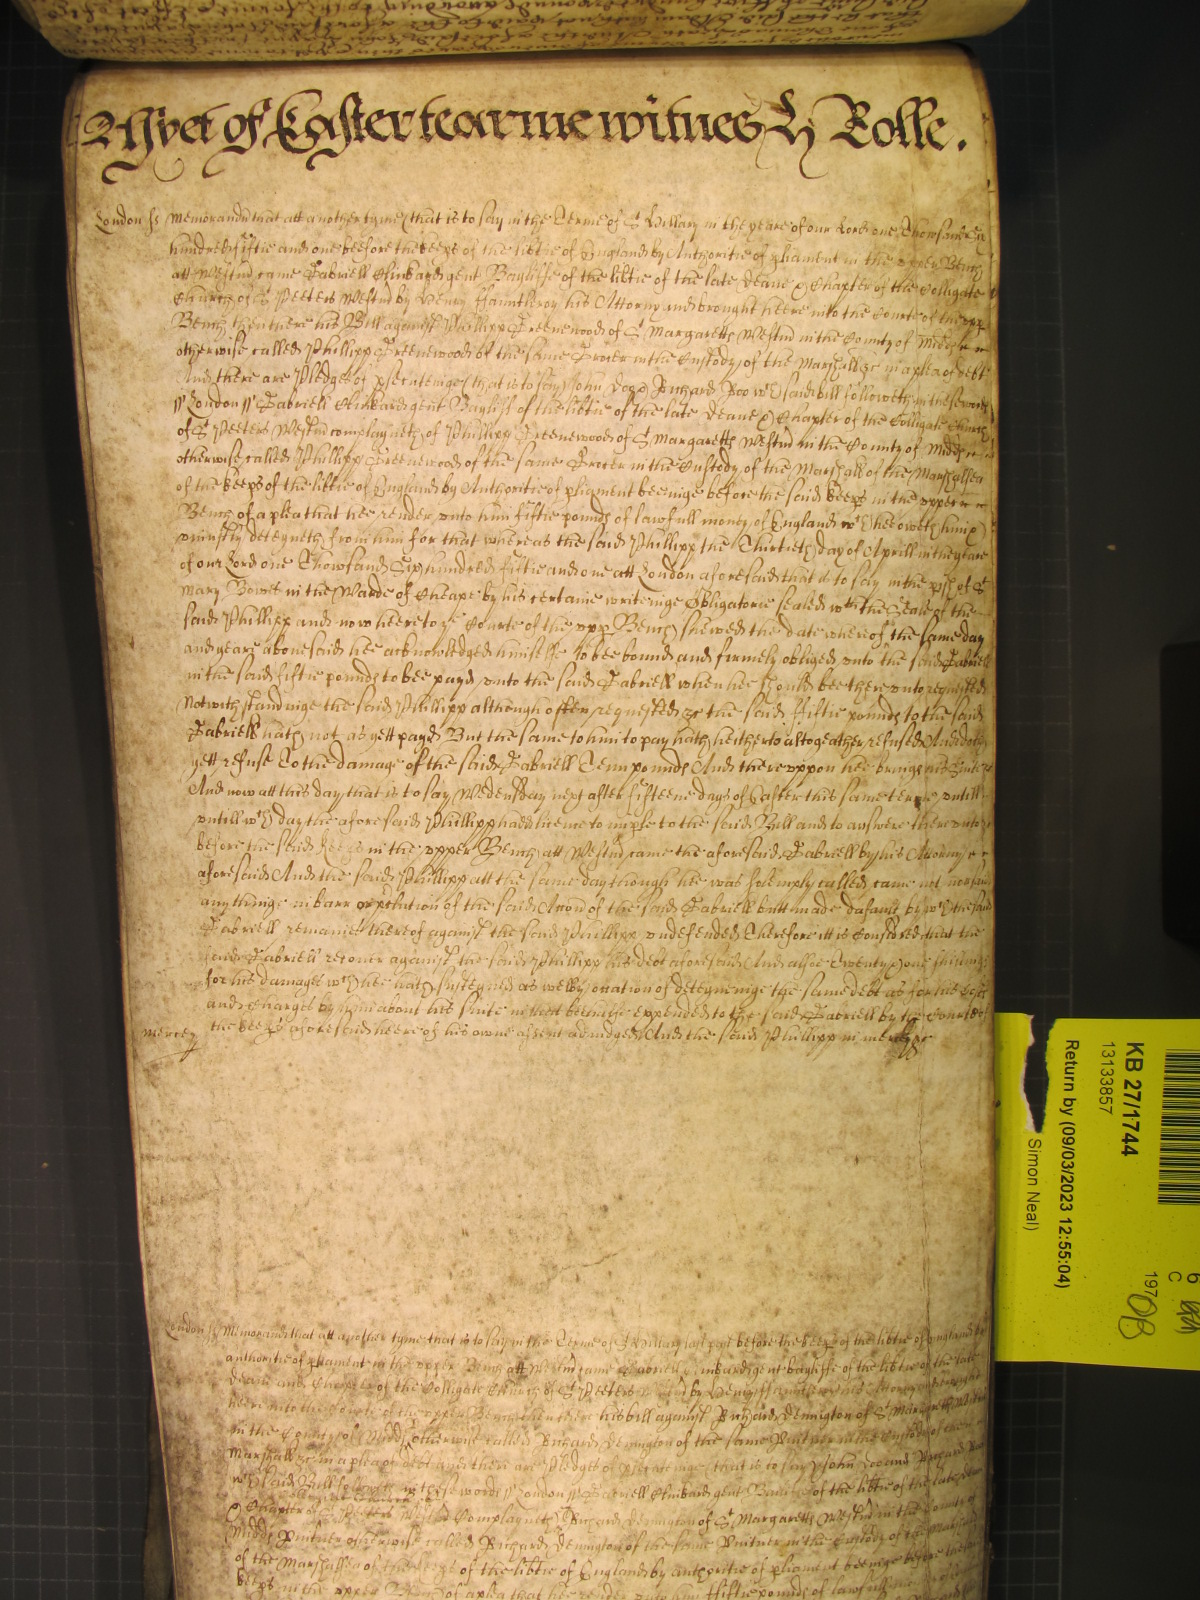 Ahyet of Easter tearme witnes H Rolle.
London ss Memorand that att another tyme (that is to say in the Terme of St Hillary in the yeare of our Lord one Thowsand Six
hundred fiftie and one beefore the keeps of the libtie of England by Authoritie of pliament in the upper Bench
att Westm came Gabriell Clinkard gent Bayliffe of the libtie of the late Deane & Chapter of the Colligate
Church of St Peeters Westm by Henry Fauntleroy his Attorny and brought heere into the Courte of the upp
Bench then there his Bill against Phillipp Greenewood of St Margaretts Westm in the County of Midd
otherwise called Phillipp Greenewood of the same Grocer in the Custody of the Marshall &c in a plea of debt
And there are Pledges of psecuteinge (that is to say) John Doo & Richard Roo wch said bill followeth in these words
ss London ss Gabriell Clinkard gent Bayliff of the libtie of the late Deane & Chapter of the Colligate Church
of St Peeters Westm complayneth of Phillipp Greenewood of St Margaretts Westm in the County of Midd
otherwise called Phillipp Greenewood of the same Grocer in the Custody of the Marshall of the Marshallsea
of the keeps of the libtie of England by Authoritie of pliament beeinge before the said keeps in the upper
Bench of a plea that hee render unto him fiftie pounds of lawfull money of England wch hee oweth him &
uniustly deteyneth from him for that whereas the said Phillipp the Thirtieth day of Aprill in the yeare
of our Lord one Thowsand Six hundred fiftie and one att London aforesaid that is to say in the pish of St
Mary Bowe in the Warde of Cheape by his certaine writeinge Obligatorie sealed wth the Seale of the
said Phillipp and now heere to ye Courte of the upp Bench shewed the date whereof the same day
and yeare abovesaid hee acknowledged himselfe to bee bound and firmely obliged unto the said Gabriell
in the said fiftie pounds to bee payd unto the said Gabriell when hee should bee thereunto requested
Notwithstandinge the said Phillipp although often requested &c the said fiftie pounds to the said
Gabriell hath not as yett payd But the same to him to pay hath heitherto altogeather refused And doth
yett refuse To the damage of the said Gabriell Tenn pounds And thereuppon hee brings his Suite &c
And now att this day that is to say Wedensday next after fifteene dayes of Easter this same terme untill
untill wch day the aforesaid Phillipp had licence to imple to the said Bill and to answere thereunto &c
before the said keeps in the upper Bench att Westm came the aforesaid Gabriell by his Attorny
aforesaid And the said Phillipp att the same day though hee was solemply called came not nor said
any thinge in barr or pclution of the said Accon of the said Gabriell butt made default by wch the said
Gabriell remaines thereof against the said Phillipp undefended Therefore itt is Considred that the
said Gabriell recover against the said Phillipp his debt aforesaid And alsoe Twenty & one shillings
for his damages wch hee hath susteyned as well by occation of deteyneinge the same debt as for his Costs
and Charges by him about his suite in that beehalfe expended to the said Gabriell by the Courte of
mercy the keeps aforesaid heere of his owne assent adiudged And the said Phillipp in mercy &c
London ss Memorand that att another tyme that is to say in the Terme of St Hillary last past before the keeps of the libtie of England by
authoritie of pliament in the upper Bench att Westm came Gabriell Clinkard gent bayliffe of the libtie of the late
Deane and Chapter of the Colligate Church of St Peeters Westm by Henry Fauntleroy his Attorny and brought
heere into the Courte of the upper Bench then there his bill against Richard Dennington of St Margaretts Westm
in the County of Midd otherwise called Richard Dennington of the same Vintner in the Custody of the
Marshall &c in a plea of debt and there are Pledges of psecuteinge (that is to say) John Doo and Richard Roo
wch said Bill followeth in these words ss London ss Gabriell Clinkard gent Bayliff of the libtie of the late Deane
& Chapter of St Peeters Westm Complayneth of Richard Dennington of St Margaretts Westm in the County of
Midd Vintner otherwise called Richard Dennington of the same Vintner in the custody of the Marshall
of the Marshallsea of the keeps of the libtie of England by authoritie of pliament beeinge before the said
keeps in the upper Bench of a plea that hee render unto him fiftie pounds of lawfull
KB 27/1744
13133857
Return by (09/03/2023 12:55:04)
Simon Neal)
197
6
C